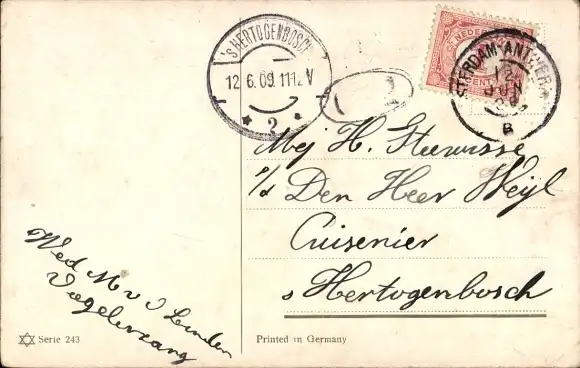 's HERTOGENBOSCH
12 6.09.11-12 V
2
2
STERDAM-ANTWERP
12
JUN
B
Mej H. Steewisse
p/d Den Heer Weijl
Cuisenier
s Hertogenbosch
Wed M v d Linden
Vogelenzang
Serie 243
Printed in Germany